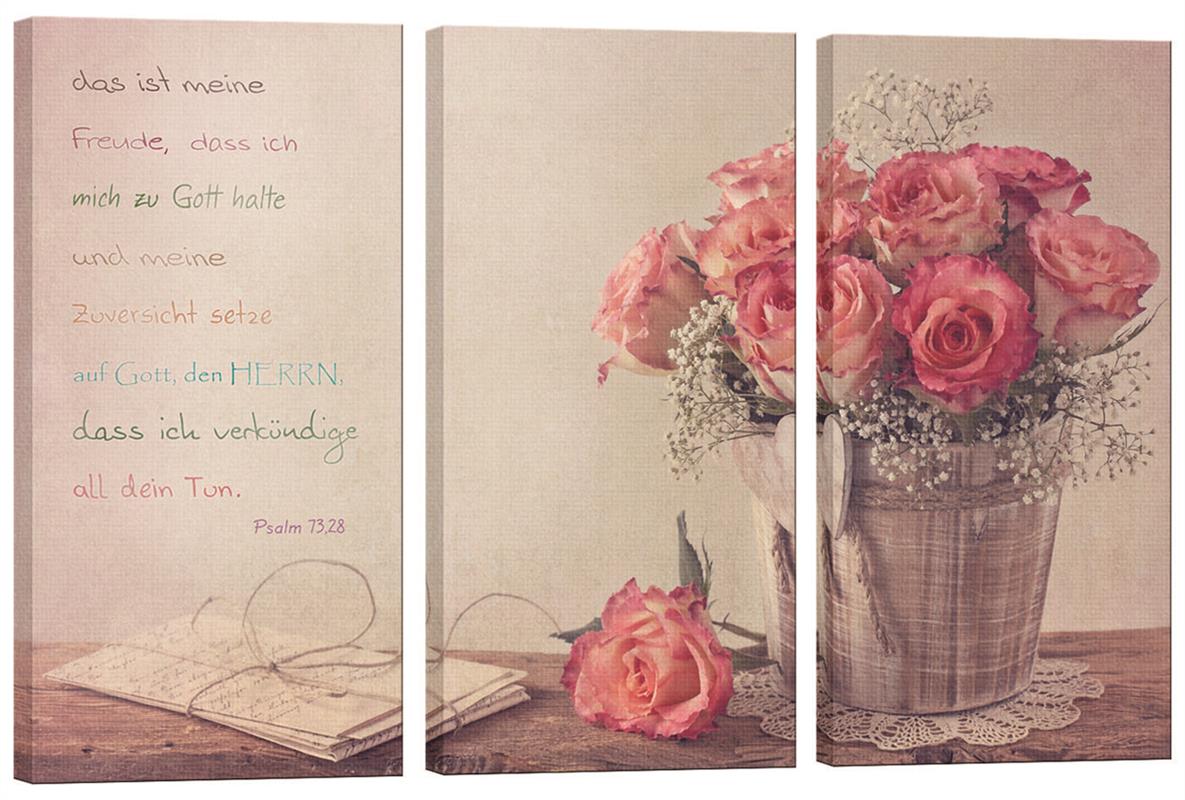 das ist meine
Freude, dass ich
mich zu Gott halte
und meine
Zuversicht setze
auf Gott, den HERRN,
dass ich verkündige
all dein Tun.
Psalm 73,28